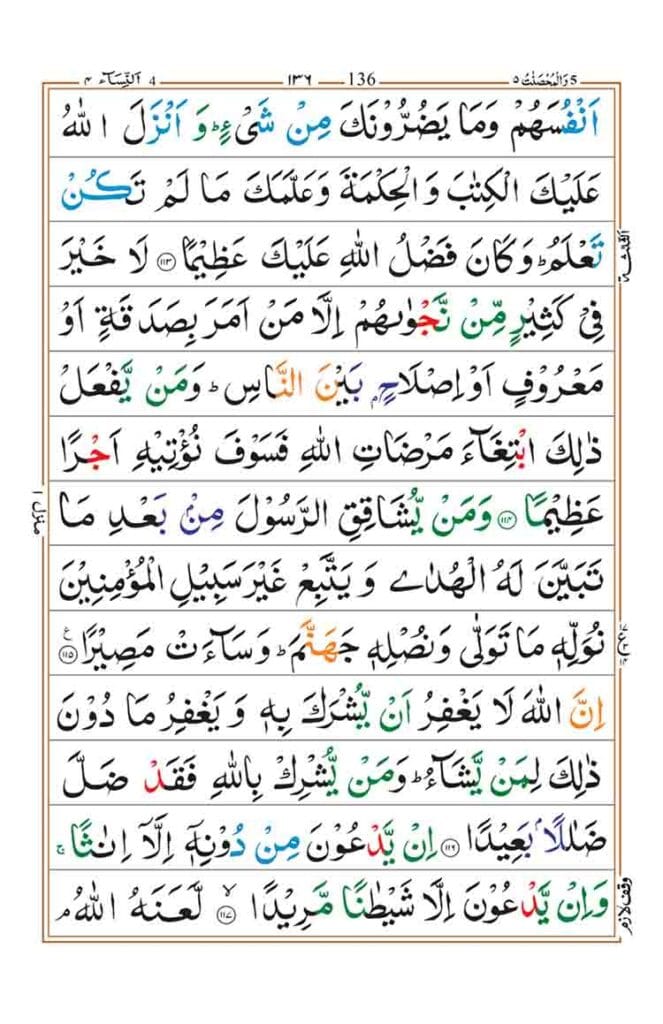 ٤ اَلنِّسَآء 4 ١٣٦ 136 وَالْمُحْصَنٰتُ ٥ 5
اَنْفُسَهُمْ وَمَا يَضُرُّوْنَكَ مِنْ شَیْءٍ ؕ وَ اَنْزَلَ اللّٰهُ
عَلَيْكَ الْكِتٰبَ وَالْحِكْمَةَ وَعَلَّمَكَ مَا لَمْ تَكُنْ
تَعْلَمُ ؕ وَكَانَ فَضْلُ اللّٰهِ عَلَيْكَ عَظِيْمًا ﴿١١٣﴾ لَا خَيْرَ
فِیْ كَثِيْرٍ مِّنْ نَّجْوٰىهُمْ اِلَّا مَنْ اَمَرَ بِصَدَقَةٍ اَوْ
مَعْرُوْفٍ اَوْ اِصْلَاحٍۭ بَيْنَ النَّاسِ ؕ وَمَنْ يَّفْعَلْ
ذٰلِكَ ابْتِغَآءَ مَرْضَاتِ اللّٰهِ فَسَوْفَ نُؤْتِيْهِ اَجْرًا
عَظِيْمًا ﴿١١٤﴾ وَمَنْ يُّشَاقِقِ الرَّسُوْلَ مِنْۢ بَعْدِ مَا
تَبَيَّنَ لَهُ الْهُدٰى وَ يَتَّبِعْ غَيْرَ سَبِيْلِ الْمُؤْمِنِيْنَ
نُوَلِّهٖ مَا تَوَلّٰى وَنُصْلِهٖ جَهَنَّمَ ؕ وَسَآءَتْ مَصِيْرًا ﴿١١٥﴾ ع
اِنَّ اللّٰهَ لَا يَغْفِرُ اَنْ يُّشْرَكَ بِهٖ وَ يَغْفِرُ مَا دُوْنَ
ذٰلِكَ لِمَنْ يَّشَآءُ ؕ وَمَنْ يُّشْرِكْ بِاللّٰهِ فَقَدْ ضَلَّ
ضَلٰلًاۢ بَعِيْدًا ﴿١١٦﴾ اِنْ يَّدْعُوْنَ مِنْ دُوْنِهٖۤ اِلَّاۤ اِنٰثًا ۚ
وَاِنْ يَّدْعُوْنَ اِلَّا شَيْطٰنًا مَّرِيْدًا ۙ﴿١١٧﴾ لَّعَنَهُ اللّٰهُ ۘ
الثلٰثة
منزل ١
وقف لازم